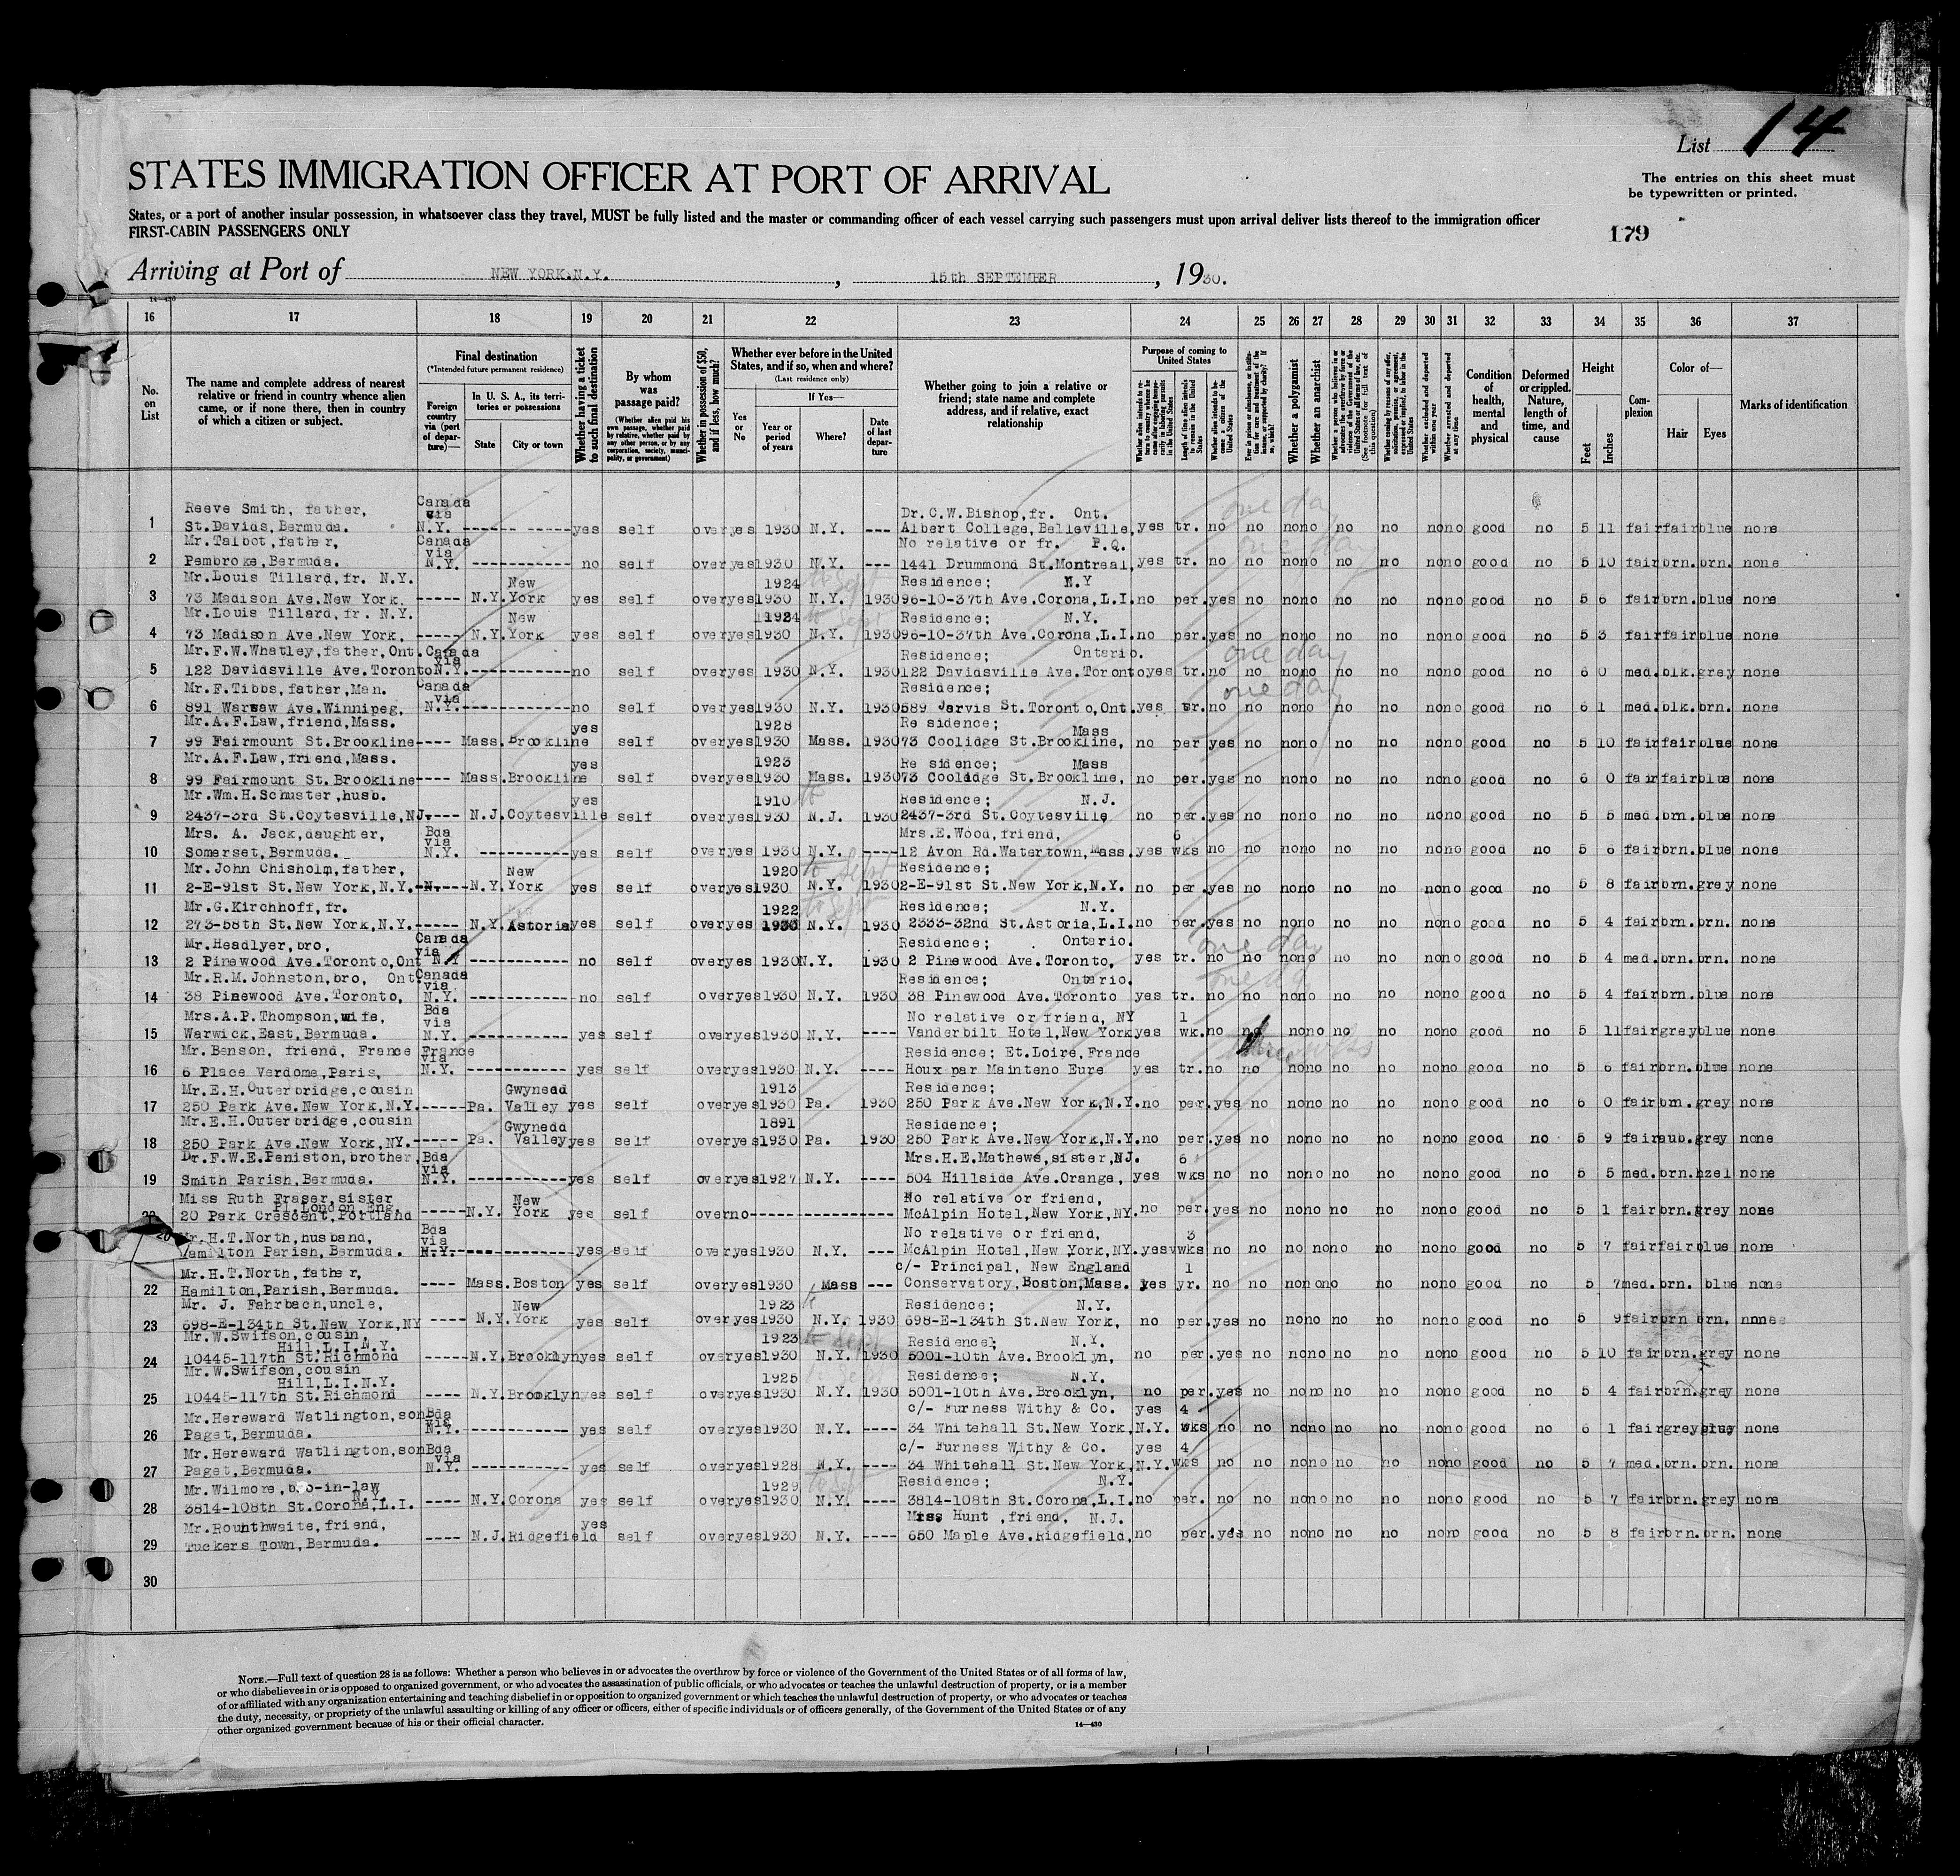 List 14
The entries on this sheet must
be typewritten or printed.
STATES IMMIGRATION OFFICER AT PORT OF ARRIVAL
States, or a port of another insular possession, in whatsoever class they travel, MUST be fully listed and the master or commanding officer of each vessel carrying such passengers must upon arrival deliver lists thereof to the immigration officer
FIRST-CABIN PASSENGERS ONLY
179
Arriving at Port of NEW YORK.N.Y. , 15th SEPTEMBER , 1930.
14-430
16 17 18 19 20 21 22 23 24 25 26 27 28 29 30 31 32 33 34 35 36 37
No. on List
The name and complete address of nearest relative or friend in country whence alien came, or if none there, then in country of which a citizen or subject.
Final destination
(*Intended future permanent residence)
Foreign country via (port of departure)—
In U. S. A., its territories or possessions
State
City or town
Whether having a ticket to such final destination
By whom was passage paid?
(Whether alien paid his own passage, whether paid by relative, whether paid by any other person, or by any corporation, society, municipality, or government)
Whether in possession of $50, and if less, how much?
Whether ever before in the United States, and if so, when and where?
(Last residence only)
Yes or No
If Yes—
Year or period of years
Where?
Date of last departure
Whether going to join a relative or friend; state name and complete address, and if relative, exact relationship
Purpose of coming to United States
Length of time alien intends to remain in the United States
Whether alien intends to become a citizen of the United States
Whether a polygamist
Whether an anarchist
(See footnote for full text of this question)
Whether excluded and deported within one year
Whether arrested and deported at any time
Condition of health, mental and physical
Deformed or crippled. Nature, length of time, and cause
Height
Feet
Inches
Complexion
Color of—
Hair
Eyes
Marks of identification
Reeve Smith, father, Canada via Dr.C.W.Bishop,fr. Ont. one day
1 St.Davids,Bermuda. N.Y. ----- ------ yes self over yes 1930 N.Y. --- Albert College,Belleville, yes tr. no no no no no no no no good no 5 11 fair fair blue none
Mr.Talbot,father, Canada via No relative or fr. P.Q. one day
2 Pembroke,Bermuda. N.Y. ------------ no self over yes 1930 N.Y. --- 1441 Drummond St.Montreal, yes tr. no no no no no no no no good no 5 10 fair brn. brn. none
Mr.Louis Tillard,fr. N.Y. New 1924 to Sept Residence; N.Y
3 73 Madison Ave.New York. ----- N.Y. York yes self over yes 1930 N.Y. 1930 96-10-37th Ave.Corona,L.I. no per. yes no no no no no no no good no 5 6 fair brn. blue none
Mr.Louis Tillard,fr. N.Y. New 1924 to Sept Residence; N.Y.
4 73 Madison Ave.New York, ----- N.Y. York yes self over yes 1930 N.Y. 1930 96-10-37th Ave.Corona,L.I. no per. yes no no no no no no no good no 5 3 fair fair blue none
Mr.F.W.Whatley,father,Ont. Canada via Residence; Ontario. one day
5 122 Davidsville Ave.Toronto N.Y. ----------- no self over yes 1930 N.Y. 1930 122 Davidsville Ave.Toronto yes tr. no no no no no no no no good no 6 0 med. blk. grey none
Mr.F.Tibbs,father,Man. Canada via Residence; one day
6 891 Warsaw Ave.Winnipeg, N.Y. ----------- no self over yes 1930 N.Y. 1930 589 Jarvis St.Toronto,Ont. yes tr. no no no no no no no no good no 6 1 med. blk. brn. none
Mr.A.F.Law,friend,Mass. yes 1928 Residence; Mass
7 99 Fairmount St.Brookline ---- Mass. Brookline self over yes 1930 Mass. 1930 73 Coolidge St.Brookline, no per yes no no no no no no no good no 5 10 fair fair blue none
Mr.A.F.Law,friend,Mass. yes 1923 Residence; Mass
8 99 Fairmount St.Brookline ---- Mass. Brookline self over yes 1930 Mass. 1930 73 Coolidge St.Brookline, no per. yes no no no no no no no good no 6 0 fair fair blue none
Mr.Wm.H.Schuster,husb. yes 1910 to Residence; N.J.
9 2437-3rd St.Coytesville,NJ. ---- N.J. Coytesville self over yes 1930 N.J. 1930 2437-3rd St.Coytesville no per. yes no no no no no no no good no 5 5 med. brn. blue none
Mrs. A. Jack,daughter, Bda via Mrs.E.Wood,friend, 6
10 Somerset,Bermuda. N.Y. ----------- yes self over yes 1930 N.Y. ---- 12 Avon Rd.Watertown,Mass. yes wks no no no no no no no no good no 5 6 fair brn. blue none
Mr.John Chisholm,father, New 1920 to Sept Residence;
11 2-E-91st St.New York,N.Y. ----- N.Y. York yes self over yes 1930 N.Y. 1930 2-E-91st St.New York,N.Y. no per. yes no no no no no no no good no 5 8 fair brn. grey none
Mr.G.Kirchhoff,fr. 1922 to Sept Residence; N.Y.
12 273-58th St.New York,N.Y. ----- N.Y. Astoria yes self over yes 1930 N.Y. 1930 2333-32nd St.Astoria,L.I. no per. yes no no no no no no no good no 5 4 fair brn. brn. none
Mr.Headlyer,bro, Canada via Residence; Ontario. one day
13 2 Pinewood Ave.Toronto,Ont N.Y ------------ no self over yes 1930 N.Y. 1930 2 Pinewood Ave.Toronto, yes tr. no no no no no no no no good no 5 4 med. brn. brn. none
Mr.R.M.Johnston,bro, Ont. Canada via Residence; Ontario.
14 38 Pinewood Ave.Toronto, N.Y. ------------ no self over yes 1930 N.Y. 1930 38 Pinewood Ave.Toronto yes tr. no no no no no no no no good no 5 4 fair brn. blue none
Mrs.A.P.Thompson,wife, Bda via No relative or friend, NY 1
15 Warwick,East,Bermuda. N.Y. ------------ yes self over yes 1930 N.Y. ---- Vanderbilt Hotel,New York yes wk. no no no no no no no no good no 5 11 fair grey blue none
Mr.Benson, friend, France France via Residence; Et.Loire,France
16 6 Place Verdome,Paris, N.Y. ----------- yes self over yes 1930 N.Y. ---- Houx par Mainteno Eure yes tr. no no no no no no no no good no 5 6 fair brn. blue none
Mr.E.H.Outerbridge,cousin Gwynedd 1913 Residence;
17 250 Park Ave.New York,N.Y. ----- Pa. Valley yes self over yes 1930 Pa. 1930 250 Park Ave.New York,N.Y. no per. yes no no no no no no no good no 6 0 fair brn. grey none
Mr.E.H.Outerbridge,cousin Gwynedd 1891 Residence;
18 250 Park Ave.New York,NY. ----- Pa. Valley yes self over yes 1930 Pa. 1930 250 Park Ave.New York,N.Y. no per. yes no no no no no no no good no 5 9 fair aub. grey none
Dr.F.W.E.Peniston,brother, Bda via Mrs.H.E.Mathews,sister,NJ. 6
19 Smith Parish,Bermuda. N.Y. ----------- yes self over yes 1927 N.Y. ---- 504 Hillside Ave.Orange, yes wks no no no no no no no no good no 5 5 med. brn. hzel none
Miss Ruth Fraser,sister New No relative or friend,
Pl.London,Eng.
20 20 Park Crescent,Portland ----- N.Y. York yes self over no --------------- McAlpin Hotel,New York,NY. no per. yes no no no no no no no good no 5 1 fair brn. grey none
20
Mr.H.T.North,husband, Bda via No relative or friend, 3
Hamilton Parish, Bermuda. N.Y. ------------- yes self over yes 1930 N.Y. --- McAlpin Hotel,New York,NY. yes wks no no no no no no no no good no 5 7 fair fair blue none
Mr.H.T.North,father, c/- Principal, New England 1
22 Hamilton,Parish,Bermuda. ---- Mass. Boston yes self over yes 1930 Mass --- Conservatory,Boston,Mass. yes yr. no no no no no no no no good no 5 7 med. brn. blue none
Mr. J. Fahrbach,uncle, New 1923 Residence; N.Y.
23 698-E-134th St.New York,NY ---- N.Y. York yes self over yes 1930 N.Y. 1930 698-E-134th St.New York, no per. yes no no no no no no no good no 5 9 fair brn brn. none
Mr.W.Swifson,cousin, 1923 to Sept Residence; N.Y.
Hill,L.I.N.Y.
24 10445-117th St.Richmond ----- N.Y. Brooklyn yes self over yes 1930 N.Y. 1930 5001-10th Ave.Brooklyn, no per. yes no no no no no no no good no 5 10 fair brn. grey none
Mr.W.Swifson,cousin 1925 Residence; N.Y.
Hill,L.I.N.Y.
25 10445-117th St.Richmond ---- N.Y. Brooklyn yes self over yes 1930 N.Y. 1930 5001-10th Ave.Brooklyn, no per. yes no no no no no no no good no 5 4 fair brn. grey none
Mr.Hereward Watlington,son Bda via c/- Furness Withy & Co. yes 4
26 Paget,Bermuda. N.Y. ------------ yes self over yes 1930 N.Y. --- 34 Whitehall St.New York, N.Y. wks no no no no no no no no good no 6 1 fair grey none
Mr.Hereward Watlington,son Bda via c/- Furness Withy & Co. yes 4
27 Paget,Bermuda. N.Y. ----------- yes self over yes 1928 N.Y. ---- 34 Whitehall St.New York, N.Y. wks no no no no no no no no good no 5 7 med. brn. brn. none
Mr.Wilmore,bro-in-law 1929 to Sept Residence; N.Y.
28 3814-108th St.Corona,L.I. ---- N.Y. Corona yes self over yes 1930 N.Y. ---- 3814-108th St.Corona,L.I. no per. no no no no no no no no good no 5 7 fair brn. grey none
Mr.Rounthwaite,friend, yes Miss Hunt ,friend, N.J.
29 Tuckers Town,Bermuda. ---- N.J. Ridgefield self over yes 1930 N.Y. ---- 650 Maple Ave.Ridgefield, no per. yes no no no no no no no good no 5 8 fair brn. brn. none
30
NOTE.—Full text of question 28 is as follows: Whether a person who believes in or advocates the overthrow by force or violence of the Government of the United States or of all forms of law,
or who disbelieves in or is opposed to organized government, or who advocates the assassination of public officials, or who advocates or teaches the unlawful destruction of property, or is a member
of or affiliated with any organization entertaining and teaching disbelief in or opposition to organized government or which teaches the unlawful destruction of property, or who advocates or teaches
the duty, necessity, or propriety of the unlawful assaulting or killing of any officer or officers, either of specific individuals or of officers generally, of the Government of the United States or of any
other organized government because of his or their official character.
14—430